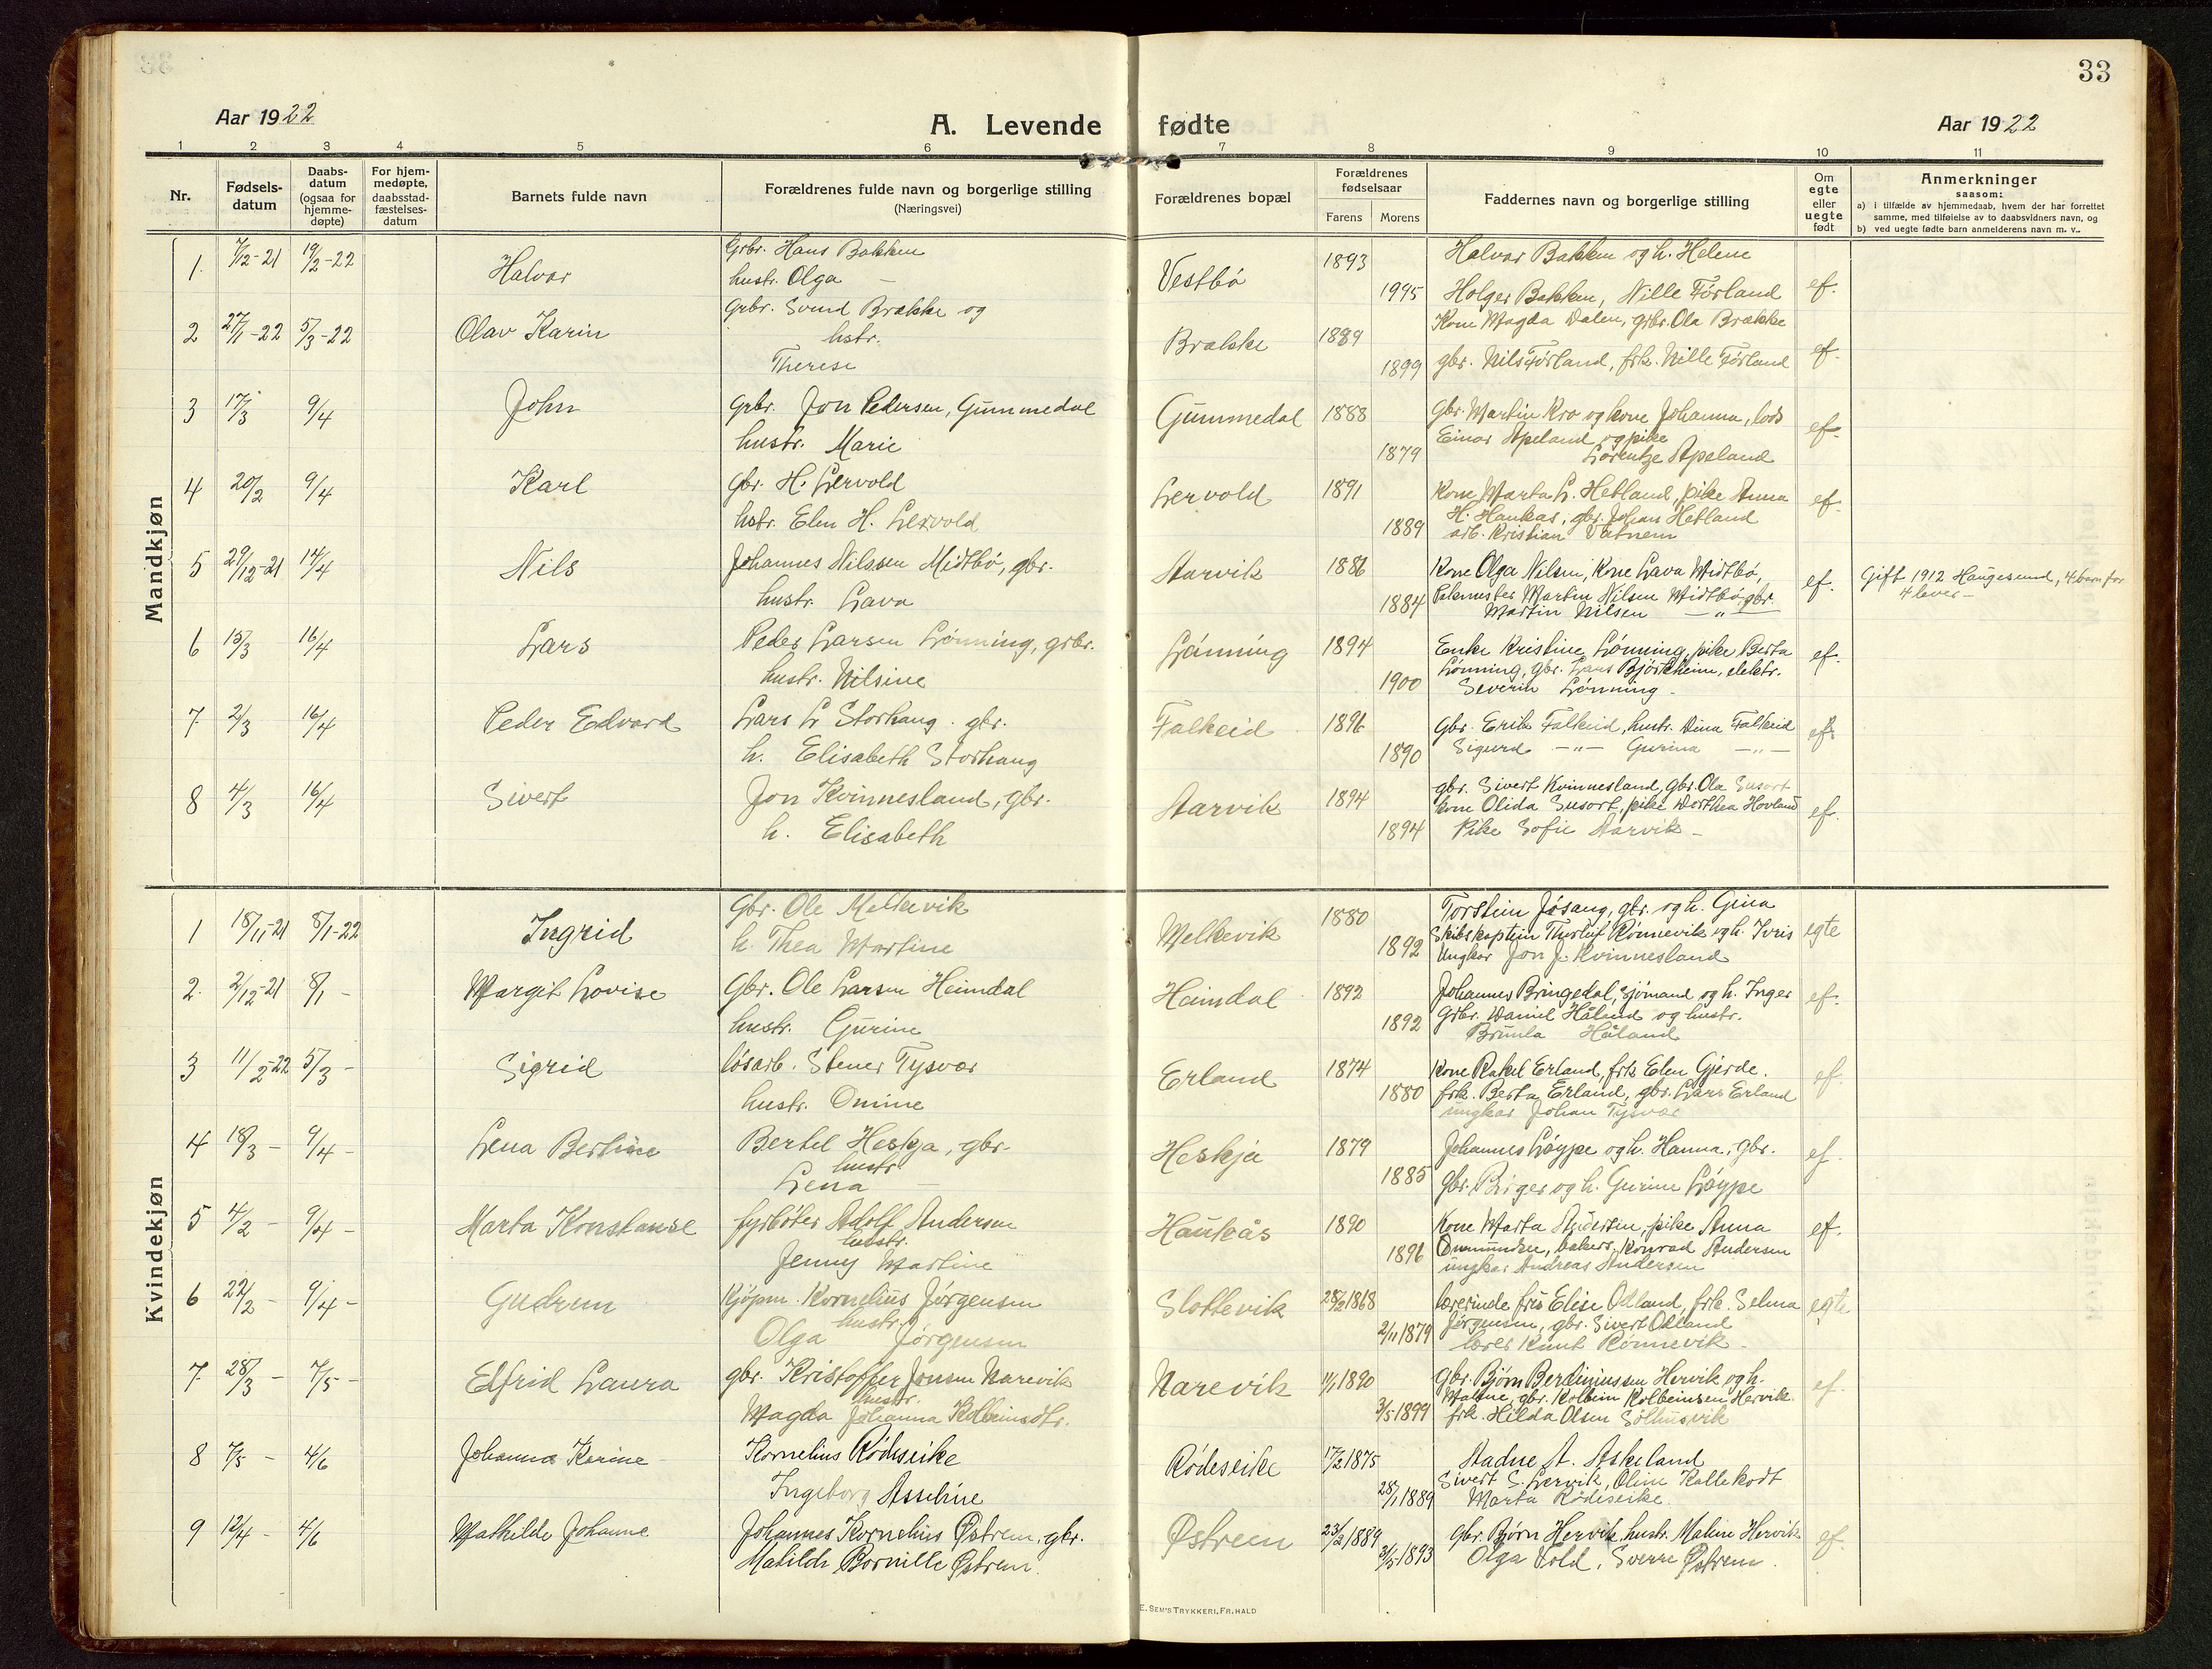 33
Aar 1922
A. Levende fødte
Aar 1922
1 2 3 4 5 6 7 8 9 10 11
Nr.
Fødsels-
datum
Daabs-
datum
(ogsaa for
hjemme-
døpte)
For hjem-
medøpte,
daabsstad-
fæstelses-
datum
Barnets fulde navn
Forældrenes fulde navn og borgerlige stilling
(Næringsvei)
Forældrenes bopæl
Forældrenes
fødselsaar
Farens Morens
Faddernes navn og borgerlige stilling
Om
egte
eller
uegte
født
Anmerkninger
saasom:
a) i tilfælde av hjemmedaab, hvem der har forrettet
samme, med tilføielse av to daabsvidners navn, og
b) ved uegte fødte barn anmelderens navn m. v.
Mandkjøn
1. 7/12-21 19/2-22 Halvor
Grbr. Hans Bakken
hustr. Olga –
Vestbö 1893 1995
Halvor Bakken og h. Helene
Holger Bakken, Nille Førland
ef.
2 27/1-22 5/3-22 Olav Karin
Grbr. Svend Brække og
hstr.
Therese
Brække 1889 1899
Kone Magda Dalen, grbr. Ola Brække
gbr. Nils Førland, frk. Nille Førland
ef.
3 17/3 9/4 John
Grbr. Jon Pedersen, Gummedal
hustr. Marie
Gummedal 1888 1879
Gbr. Martin Kro og kone Johanna, lods
Einar Apeland og pike
Lorentze Apeland
ef.
4 20/2 9/4 Karl
Gbr. H. Lervold
hstr. Elen H. Lervold
Lervold 1891 1889
Kone Marta L. Hetland, pike Anna
H. Haukas, gbr. Johan Hetland
arb. Kristian Vatnem
ef.
5 29/12-21 14/4 Nils
Johannes Nilssen Midtbö, gbr.
hustr. Lava
Aarvik 1886 1884
Kone Olga Nilsen, Kone Lava Midtbö,
Martin Nilsen Midtbö, gbr.
Martin Nilsen – " –
ef.
Gift 1912 Haugesund, 4 barn før
4 lever –
6 15/3 16/4 Lars
Peder Larsen Lönning, grbr.
hustr. Nilsine
Lönning 1894 1900
Enke Kristine Lönning, pike Berta
Lönning, gbr. Lars Bjørkheim, elektr.
Severin Lönning.
ef.
7. 2/3 16/4 Peder Edvard
Lars L Storhaug. gbr.
h. Elisabeth Storhaug
Falkeid 1896 1890
Gbr. Erik Falkeid, hustr. Dina Falkeid
Sigurd – " – Gurina – " –
ef.
8 4/3 16/4 Sivert
Jon Kvinnesland, gbr.
h. Elisabeth
Aarvik 1894 1894
gbr. Sivert Kvinnesland, gbr. Ola Susort
kone Olida Susort, pike Dorthea Hovland
Pike Sofie Aarvik –
ef.
Kvindekjøn
1 18/11-21 8/1-22 Ingrid
Gbr. Ole Melkevik
h. Thea Martine
Melkevik 1880 1892
Torstein Jøsang, gbr. og h. Gina
Skibskaptein Thorluf Rönnevik og h. Ivris
Ungkar Jon J. Kvinnesland
egte
2. 2/12-21 8/1 - Margit Lovise
Gbr. Ole Larsen Heimdal
hustr. Gurine
Heimdal 1892 1892
Johannes Bringedal, sjömand og h. Inger
Grbr. Daniel Håland og hustr.
Brunla Håland
ef.
3 11/2-22 5/3 - Sigrid
løsarb. Stener Tysvær
hustr. Omine
Erland 1874 1880
Kone Rakel Erland, frk Elen Gjerde.
frk. Berta Erland, gbr. Lars Erland
ungkar Johan Tysvær
ef.
4 18/3 - 9/4 - Lena Bertine
Bertel Heskja, gbr.
hustr.
Lena –
Heskja 1879 1885
Johannes Løyppe og h. Hanna, gbr.
gbr. Birger og h. Gurine Löyppe
ef.
5 4/2 - 9/4 - Marta Konstanse
fyrböter Adolf Andersen
hustr.
Jenny Martine
Haukås 1890 1896
Kone Marta Andersen, pike Anna
Ommundsen, bakers. Konrad Andersen
ungkar Andreas Andersen
ef.
6 22/2 - 9/4 - Gudrun
Kjöpm. Kornelius Jørgensen
hustr.
Olga Jørgensen
Slottevik 28/2 1868 2/11 1879
lærerinde frø Elise Odland, frk. Selma
Jørgensen, gbr. Sivert Odland
lærer Knut Rönnevik –
egte
7. 28/3 - 7/5 - Elfrid Laura
gbr. Kristoffer Jonsen Narevik
hustr.
Magda Johanna Kolbeinsdtr.
Narevik 11/1 1890 3/5 1899
Gbr. Bjørn Berdiniussen Hervik og h.
Maline, gbr. Kolbein Kolbeinsen Hervik.
frk. Hilda Olsen Solhusvik
ef.
8 7/5 - 4/6 Johanna Karine
Kornelius Rödeseike
Ingeborg Asseline
Rödeseike 17/2 1875 28/1 1889
Aadne A. Askeland
Sivert S. Lervik, Oline Kallekodt
Marta Rödeseike.
9 12/4 - 4/6 Mathilde Johanne
Johannes Kornelius Østrem, gbr.
Matilde Bornille Østrem.
Østrem 23/2 1889 31/5 1893
gbr. Bjørn Hervik, hustr. Maline Hervik
Olga Vold, Sverre Østrem.
ef.
E. SEM'S TRYKKERI, FR.HALD